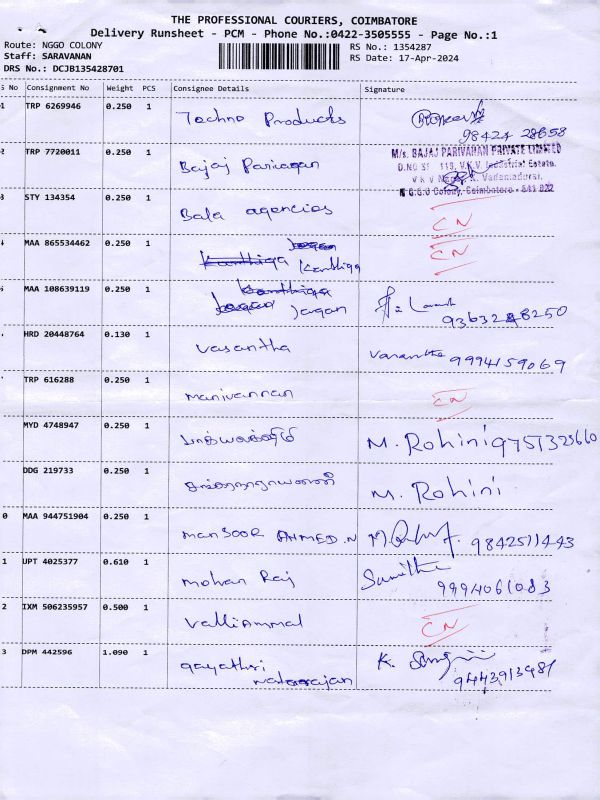 THE PROFESSIONAL COURIERS, COIMBATORE
Delivery Runsheet - PCM - Phone No.:0422-3505555 - Page No.:1
Route: NGGO COLONY RS No.: 1354287
Staff: SARAVANAN RS Date: 17-Apr-2024
DRS No.: DCJB135428701
S No Consignment No Weight PCS Consignee Details Signature
1 TRP 6269946 0.250 1 Techno Products
98424 28658
2 TRP 7720011 0.250 1 Bajaj Parivagan
M/s. BAJAJ PARIVAHAN PRIVATE LIMITED
D.NO 119, V.K.V. Industrial Estate,
V K V Nagar, K. Vadamadurai,
N.G.G.O Colony, Coimbatore - 641 022
3 STY 134354 0.250 1 Bala agencies CN
4 MAA 865534462 0.250 1 Kanthiga Jagan Kanthiga CN
5 MAA 108639119 0.250 1 Kanthiga Jagan Jagan
9363248250
HRD 20448764 0.130 1 Vasantha Vasantha 9994159069
TRP 616288 0.250 1 manivannan CN
MYD 4748947 0.250 1 M. Rohini 9751325660
DDG 219733 0.250 1 M. Rohini
0 MAA 944751904 0.250 1 MANSOOR AHMED.N 9842511443
1 UPT 4025377 0.610 1 Mohan Raj Sumithra
9994061083
2 IXM 506235957 0.500 1 Valliammal CN
3 DPM 442596 1.090 1 gayathri K.
natarajan 9443913481